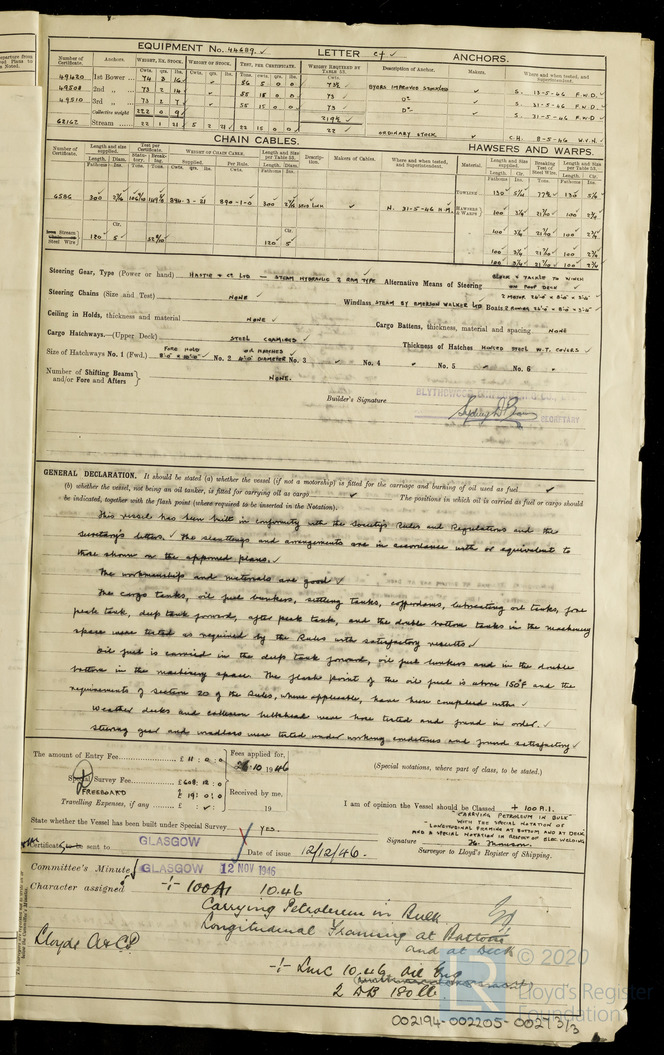 EQUIPMENT No. 44689. ✓ LETTER c† ✓ ANCHORS.
Number of Certificate. Anchors. Weight, Ex. Stock. Weight of Stock. Test, per Certificate. Weight Required by Table 53. Description of Anchor. Makers. Where and when tested, and Superintendent.
Cwts. qrs. lbs. Cwts. qrs. lbs. Tons. cwts. qrs. lbs. Cwts.
49420 1st Bower 74 3 16 56 5 0 0 73½ BYERS IMPROVED STOCKLESS S. 13-5-46 F.W.D.
49508 2nd „ 73 2 14 55 15 0 0 73 Do S. 31-5-46 F.W.D.
49510 3rd „ 73 2 7 55 15 0 0 73 Do S. 31-5-46 F.W.D.
Collective weight 222 0 9 219½
62162 Stream 22 1 21 5 2 21 22 15 0 0 22 ORDINARY STOCK C.H. 8-5-46 W.V.H.
CHAIN CABLES. HAWSERS AND WARPS.
Number of Certificate. Length and size supplied. Test per Certificate. Weight of Chain Cable. Length and size per Table 53. Description. Makers of Cables. Where and when tested, and Superintendent. Material. Length and size supplied. Breaking Test of Steel Wire. Length and Size per Table 53.
Length. Diam. Statutory. Breaking. Supplied. Per Rule. Length. Diam. Length. Cir. Length. Cir.
Fathoms Ins. Tons. Tons. Cwts. qrs. lbs. Cwts. Fathoms Ins. Fathoms Ins. Tons. Fathoms Ins.
6586 300 894-3-21 890-1-0 300 STUD LINK N. 31-5-46 H.M. TOWLINE 130 5¼ 77½ 130 5¼
HAWSERS & WARPS 100 100
100 100
100 100
Stream Chain Steel Wire 120 5 120 5
Steering Gear, Type (Power or hand) HASTIE & Co LTD — STEAM HYDRAULIC 2 RAM TYPE Alternative Means of Steering BLOCK & TACKLE TO WINCH ON POOP DECK ✓
Steering Chains (Size and Test) NONE ✓ Windlass STEAM BY EMERSON WALKER LTD Boats
Ceiling in Holds, thickness and material NONE ✓ Cargo Battens, thickness, material and spacing NONE
Cargo Hatchways.—(Upper Deck) STEEL COAMINGS ✓ Thickness of Hatches HINGED STEEL W.T. COVERS ✓
Size of Hatchways No. 1 (Fwd.) FORE HOLD No. 2 OIL HATCHES 4'0" DIAMETER No. 3 No. 4 No. 5 No. 6
Number of Shifting Beams and/or Fore and Afters } NONE.
Builder's Signature SECRETARY
GENERAL DECLARATION. It should be stated (a) whether the vessel (if not a motorship) is fitted for the carriage and burning of oil used as fuel ✓
(b) whether the vessel, not being an oil tanker, is fitted for carrying oil as cargo ✓ The positions in which oil is carried as fuel or cargo should
be indicated, together with the flash point (where required to be inserted in the Notation).
This vessel has been built in conformity with the Society's Rules and Regulations and the
secretary's letters. ✓ The scantlings and arrangements are in accordance with or equivalent to
those shown on the approved plans. ✓
The workmanship and materials are good ✓
The cargo tanks, oil fuel bunkers, settling tanks, cofferdams, lubricating oil tanks, fore
peak tank, deep tank forward, after peak tank, and the double bottom tanks in the machinery
space were tested as required by the Rules with satisfactory results. ✓
Oil fuel is carried in the deep tank forward, oil fuel bunkers and in the double
bottom in the machinery space. The flash point of the oil fuel is above 150°F and the
requirements of section 20 of the Rules, where applicable, have been complied with. ✓
Weather decks and bulkhead were hose tested and found in order. ✓
Steering gear and windlass were tested under working conditions and found satisfactory ✓
The amount of Entry Fee £ 11 : 0 : 0 Fees applied for, 26.10 1946 (Special notations, where part of class, to be stated.)
Special Survey Fee £ 608 : 12 : 0
FREEBOARD £ 19 : 0 : 0 Received by me,
Travelling Expenses, if any £ : ✓ : 19
I am of opinion the Vessel should be Classed + 100 A.1.
"CARRYING PETROLEUM IN BULK"
WITH THE SPECIAL NOTATION OF
"LONGITUDINAL FRAMING AT BOTTOM AND AT DECK"
AND A SPECIAL NOTATION IN RESPECT OF ELEC. WELDING
State whether the Vessel has been built under Special Survey ✓ YES.
Signature
Surveyor to Lloyd's Register of Shipping.
Certificate to be sent to GLASGOW Date of issue 12/12/46.
Committee's Minute GLASGOW 12 NOV 1946
Character assigned + 100A1 10.46
Carrying Petroleum in Bulk
Longitudinal Framing at Bottom
and at Deck
Lloyds A&CP
+ LMC 10.46 Oil Eng
2 DB 180 lb.
© 2020
LR
Lloyd's Register
Foundation
002194-002205-0027 3/3